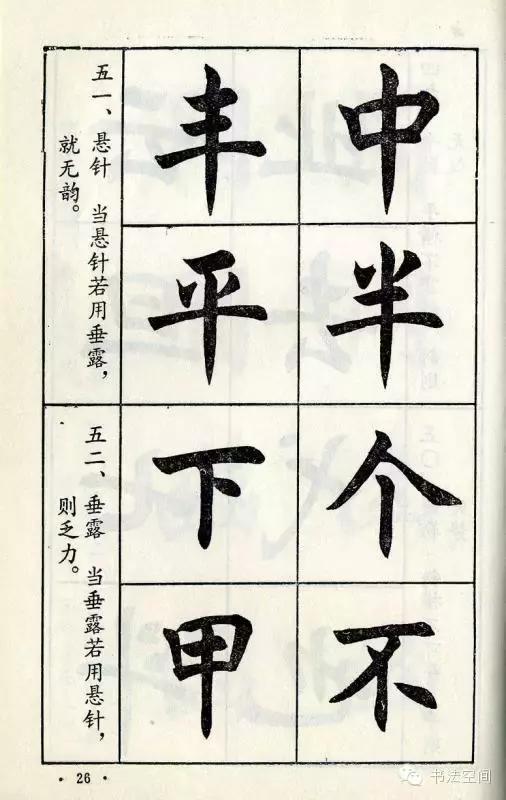 中半
丰平
五一、悬针 当悬针若用垂露，
就无韵。
个不
下甲
五二、垂露 当垂露若用悬针，
则乏力。
·26·
书法空间